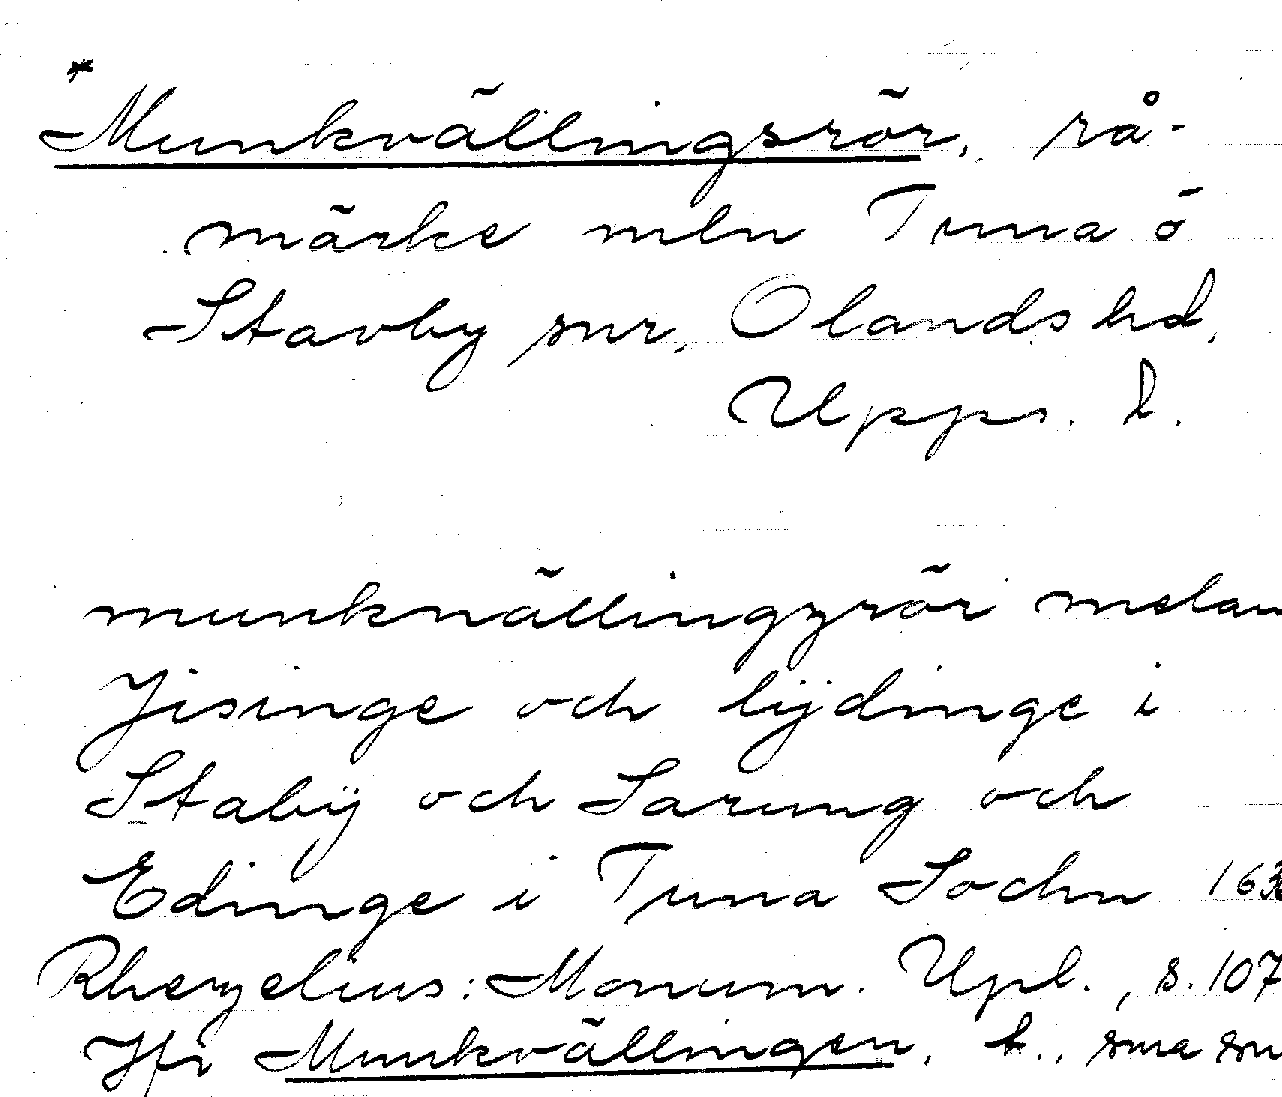 *Munkvällingsrör, rå-
märke mln Tuna o
Stavby snr, Olands hd,
Upps. l.
munknällingzrör melan
Jisinge och lijdinge i
Stabÿ och Sarung och
Edinge i Tuna Sochn 163
Rhezelius: Monum. Upl., s. 107
Jfr Munkvällingen, t., sma sn